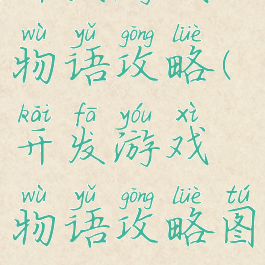 wù yǔ gōng lüè
物语攻略(
kāi fā yóu xì
开发游戏
wù yǔ gōng lüè tú
物语攻略图